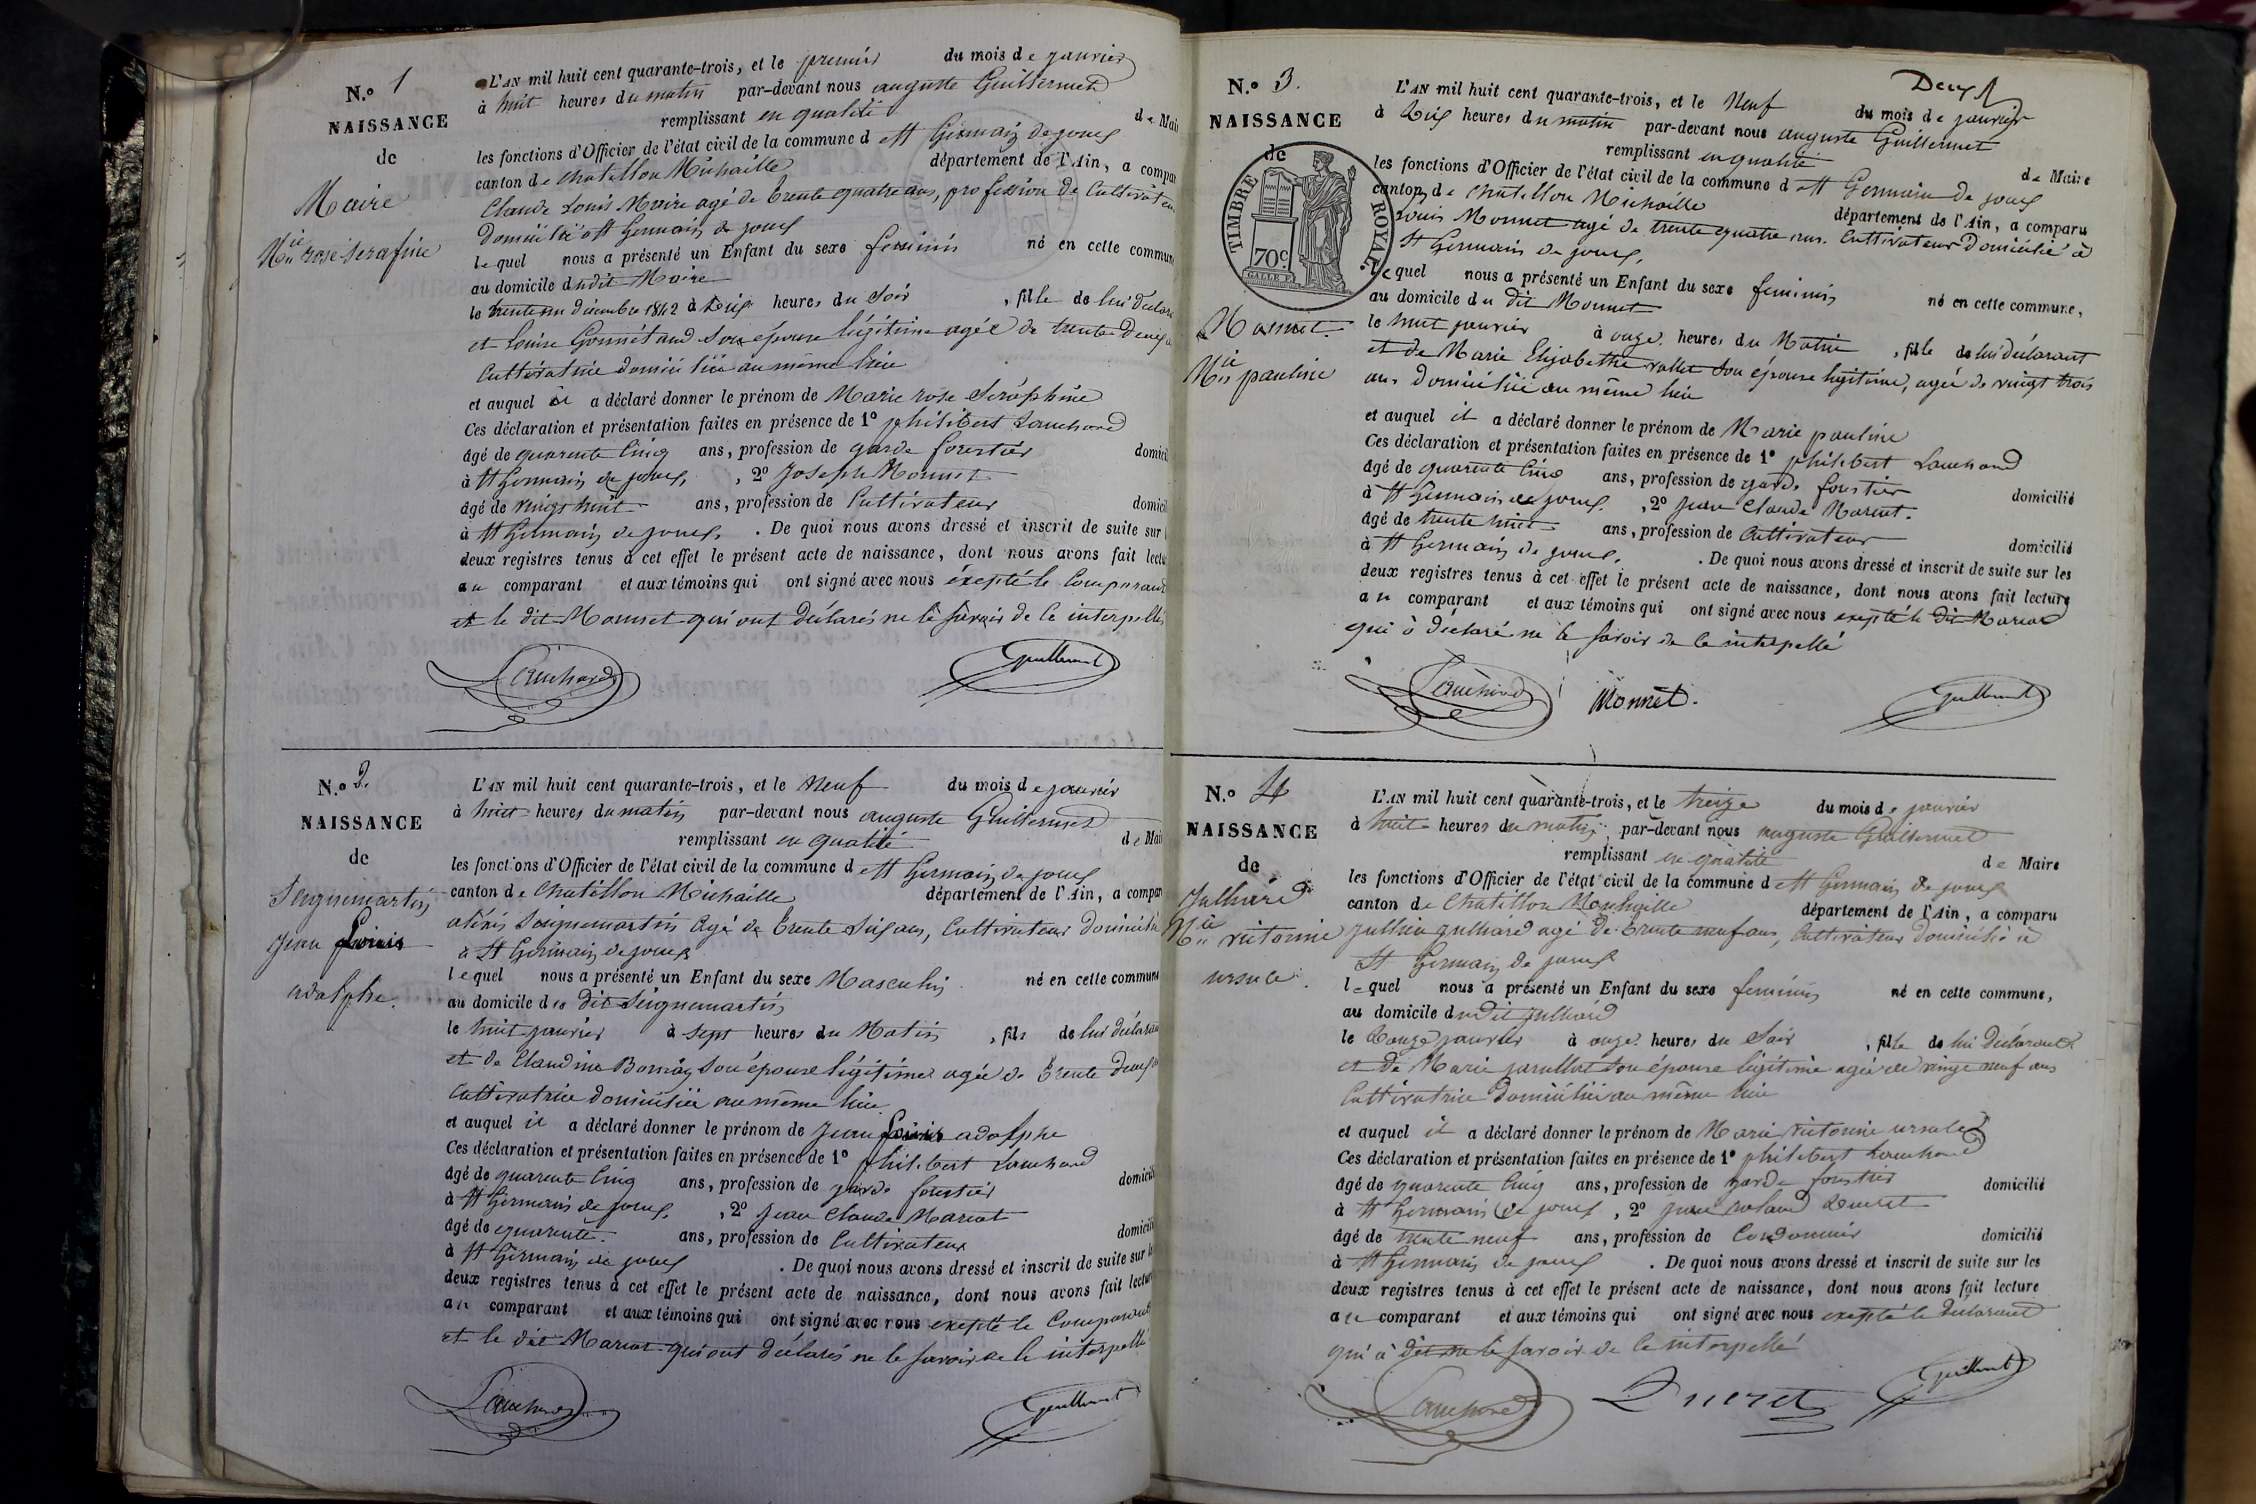 N.o 1
NAISSANCE
de
Maire
Mie rose Serafine
L'AN mil huit cent quarante-trois, et le premier du mois de janvier
à huit heures du matin par-devant nous auguste Guillermet
remplissant en qualité de Mai
les fonctions d'Officier de l'état civil de la commune d St Germain de joux
canton de Chatillon Michaille département de l'Ain, a compar
Claude Louis Maire agé de trente quatre ans, profession de Cultivateur
domicilié à St Germain de joux
lequel nous a présenté un Enfant du sexe feminin né en cette commune
au domicile dudit Maire
le trente un décembre 1842 à dix heures du Soir , fille de lui déclara
et Louise son épouse légitime agée de trente deux
Cultivatrice domiciliée au même lieu
et auquel il a déclaré donner le prénom de Marie rose Séraphine
Ces déclaration et présentation faites en présence de 1o philibert Lauchard
âgé de quarente cinq ans, profession de garde forestier domicil
à St Germain de joux, , 2o Joseph Monnet
âgé de vingt huit ans, profession de Cultivateur domicil
à St Germain de joux. . De quoi nous avons dressé et inscrit de suite sur
deux registres tenus à cet effet le présent acte de naissance, dont nous avons fait lectu
au comparant et aux témoins qui ont signé avec nous éxepté le Comparant
et le dit Monnet qui ont déclarés ne le savoir de ce interpellés
Lauchard Guillermet
N.o 2.
NAISSANCE
de
Seignemartin
jean Louis
adolphe.
L'AN mil huit cent quarante-trois, et le Neuf du mois de janvier
à huit heures du matin par-devant nous auguste Guillermet
remplissant en qualité de Mai
les fonctions d'Officier de l'état civil de la commune d St Germain de joux
canton de Chatillon Michaille département de l'Ain, a compar
aléxis Seignemartin agé de trente Six ans, Cultivateur domicilié
à St Germain de joux
lequel nous a présenté un Enfant du sexe Masculin né en cette commune
au domicile du dit Seignemartin
le huit janvier à sept heures du Matin , fils de lui déclarant
et de Claudine son épouse légitime agée de trente deux
Cultivatrice domiciliée au même lieu
et auquel il a déclaré donner le prénom de jean Louis adolphe
Ces déclaration et présentation faites en présence de 1o philibert Lauchard
âgé de quarente cinq ans, profession de garde forestier domicil
à St Germain de joux, , 2o jean Claude Marcot
âgé de quarente ans, profession de Cultivateur domicil
à St Germain de joux . De quoi nous avons dressé et inscrit de suite sur
deux registres tenus à cet effet le présent acte de naissance, dont nous avons fait lectur
au comparant et aux témoins qui ont signé avec nous éxepté le Comparant
et le dit Marcot qui ont déclarés ne le savoir de le interpellé
Lauchard Guillermet
Deux
N.o 3.
NAISSANCE
de
TIMBRE ROYAL.
70c
Monnet
Mie pauline
L'AN mil huit cent quarante-trois, et le Neuf du mois de janvier
à dix heures du matin par-devant nous auguste Guillermet
remplissant en qualité de Maire
les fonctions d'Officier de l'état civil de la commune d St Germain de joux
canton de Chatillon Michaille département de l'Ain, a comparu
Louis Monnet agé de trente quatre ans. Cultivateur domicilié à
St Germain de joux,
lequel nous a présenté un Enfant du sexe feminin né en cette commune,
au domicile du dit Monnet
le huit janvier à onze heures du Matin , fille de lui déclarant
et de Marie Elizabeth son épouse légitime, agée de vingt trois
ans domiciliée au même lieu
et auquel il a déclaré donner le prénom de Marie pauline
Ces déclaration et présentation faites en présence de 1o philibert Lauchard
âgé de quarente cinq ans, profession de garde forestier domicilié
à St Germain de joux. , 2o jean Claude Marcot.
âgé de trente huit ans, profession de Cultivateur domicilié
à St Germain de joux, . De quoi nous avons dressé et inscrit de suite sur les
deux registres tenus à cet effet le présent acte de naissance, dont nous avons fait lecture
au comparant et aux témoins qui ont signé avec nous exepté le dit Marcot
qui à déclaré ne le savoir de ce interpellé
Lauchard Monnet. Guillermet
N.o 4
NAISSANCE
de
Julliard
Mie victorine
ursule.
L'AN mil huit cent quarante-trois, et le treize du mois de janvier
à huit heures du matin par-devant nous auguste Guillermet
remplissant en qualité de Maire
les fonctions d'Officier de l'état civil de la commune d St Germain de joux
canton de Chatillon Michaille département de l'Ain, a comparu
Julliard agé de trente neuf ans, Cultivateur domicilié à
St Germain de joux
lequel nous a présenté un Enfant du sexe feminin né en cette commune,
au domicile dudit julliard
le douze janvier à onze heures du Soir , fille de lui déclarant
et de Marie son épouse légitime agée de vingt neuf ans
Cultivatrice domiciliée au même lieu
et auquel il a déclaré donner le prénom de Marie victorine ursule
Ces déclaration et présentation faites en présence de 1o philibert Lauchard
âgé de quarente cinq ans, profession de garde forestier domicilié
à St Germain de joux , 2o jean Ducret
âgé de trente neuf ans, profession de Cordonnier domicilié
à St Germain de joux . De quoi nous avons dressé et inscrit de suite sur les
deux registres tenus à cet effet le présent acte de naissance, dont nous avons fait lecture
au comparant et aux témoins qui ont signé avec nous exepté le déclarant
qui à dit ne le savoir de ce interpellé
Lauchard Ducret Guillermet